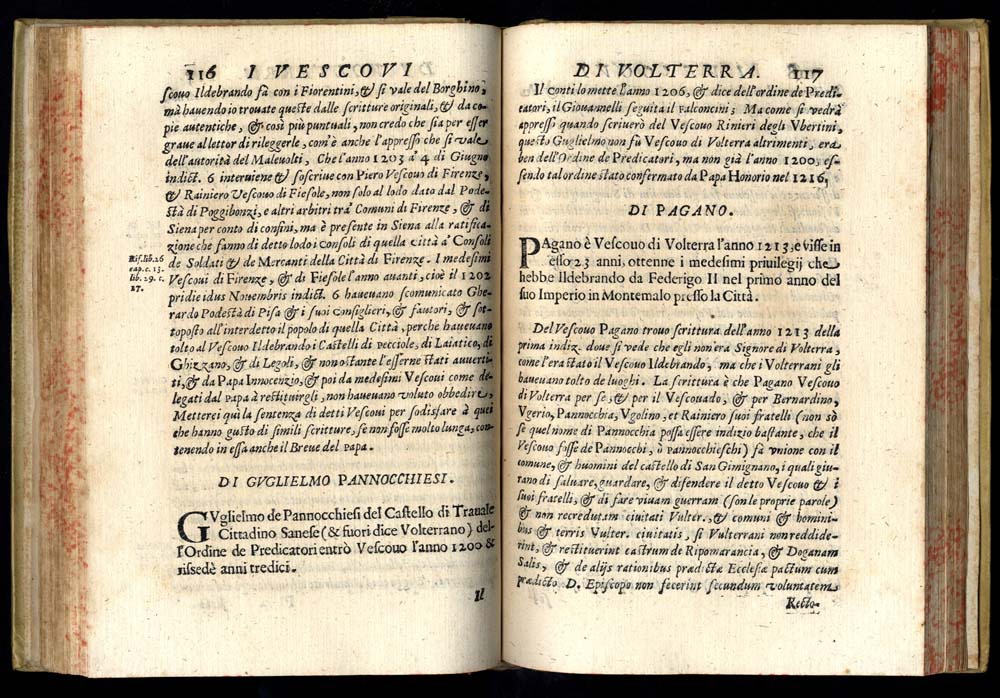 116 I VESCOVI
scouo Ildebrando fà con i Fiorentini, & si vale del Borghino,
mà hauendo io trouate queste dalle scritture originali, & da co-
pie autentiche, & così più puntuali, non credo che sia per esser
graue al lettor di rileggerle, com'è anche l'appresso che si vale
dell'autorità del Maleuolti, Che l'anno 1203 à 4 di Giugno
indict. 6 interuiene & soscriue con Piero Vescouo di Firenze,
& Rainiero Vescouo di Fiesole, non solo al lodo dato dal Pode-
stà di Poggibonzi, e altri arbitri trà Comuni di Firenze, & di
Siena per conto di confini, ma è presente in Siena alla ratifica-
zione che fanno di detto lodo i Consoli di quella Città à Consoli
de Soldati & de Mercanti della Città di Firenze. I medesimi
Vescoui di Firenze, & di Fiesole l'anno auanti, cioè il 1202
pridie idus Nouembris indict. 6 haueuano scomunicato Ghe-
rardo Podestà di Pisa & i suoi Consiglieri, & fautori, & sot-
toposto all'interdetto il popolo di quella Città, perche haueuano
tolto al Vescouo Ildebrando i Castelli di Pecciole, di Laiatico, di
Ghizzano, & di Legoli, & non ostante l'esserne stati auuerti-
ti, & da Papa Innocenzio, & poi da medesimi Vescoui come de-
legati dal Papa à restituirgli, non haueuano voluto obbedire,
Metterei quì la sentenza di detti Vescoui per sodisfare à quei
che hanno gusto di simili scritture, se non fosse molto lunga, con-
tenendo in essa anche il Breue del Papa.
Rif. lib. 26
cap. c. 13.
lib. 29. c.
27.
DI GVGLIELMO PANNOCCHIESI.
GVglielmo de Pannocchiesi del Castello di Trauale
Cittadino Sanese (& fuori dice Volterrano) del-
l'Ordine de Predicatori entrò Vescouo l'anno 1200 &
rissedè anni tredici.
Il
DI VOLTERRA. 117
Il Conti lo mette l'anno 1206, & dice dell'ordine de Predi-
catori, il Giouannelli seguita il Falconcini; Ma come si vedrà
appresso quando scriuerò del Vescouo Rinieri degli Vbertini,
questo Guglielmo non fù Vescouo di Volterra altrimenti, era
ben dell'Ordine de Predicatori, ma non già l'anno 1200, es-
sendo tal ordine stato confermato da Papa Honorio nel 1216,
DI PAGANO.
PAgano è Vescouo di Volterra l'anno 1213, e visse in
esso 23 anni, ottenne i medesimi priuilegij che
hebbe Ildebrando da Federigo II nel primo anno del
suo Imperio in Montemalo presso la Città.
Del Vescouo Pagano trouo scrittura dell'anno 1213 della
prima indiz. doue si vede che egli non era Signore di Volterra,
come l'era stato il Vescouo Ildebrando, ma che i Volterrani gli
haueuano tolto de luoghi. La scrittura è che Pagano Vescouo
di Volterra per se, & per il Vescouado, & per Bernardino,
Vgerio, Pannocchia, Vgolino, et Rainiero suoi fratelli (non sò
se quel nome di Pannocchia possa essere indizio bastante, che il
Vescouo fosse de Pannocchi, ò pannocchieschi) fà vnione con il
comune, & huomini del castello di San Gimignano, i quali giu-
rano di saluare, guardare, & difendere il detto Vescouo & i
suoi fratelli, & di fare viuam guerram (son le proprie parole)
& non recredutam ciuitati Vulter., & comuni & homini-
bus & terris Vulter. ciuitatis, si Vulterrani non reddide-
rint, & restituerint castrum de Ripomarancia, & Doganam
Salis, & de alijs rationibus prædictæ Ecclesiæ pactum cum
prædicto D. Episcopo non fecerint secundum voluntatem
Recto-